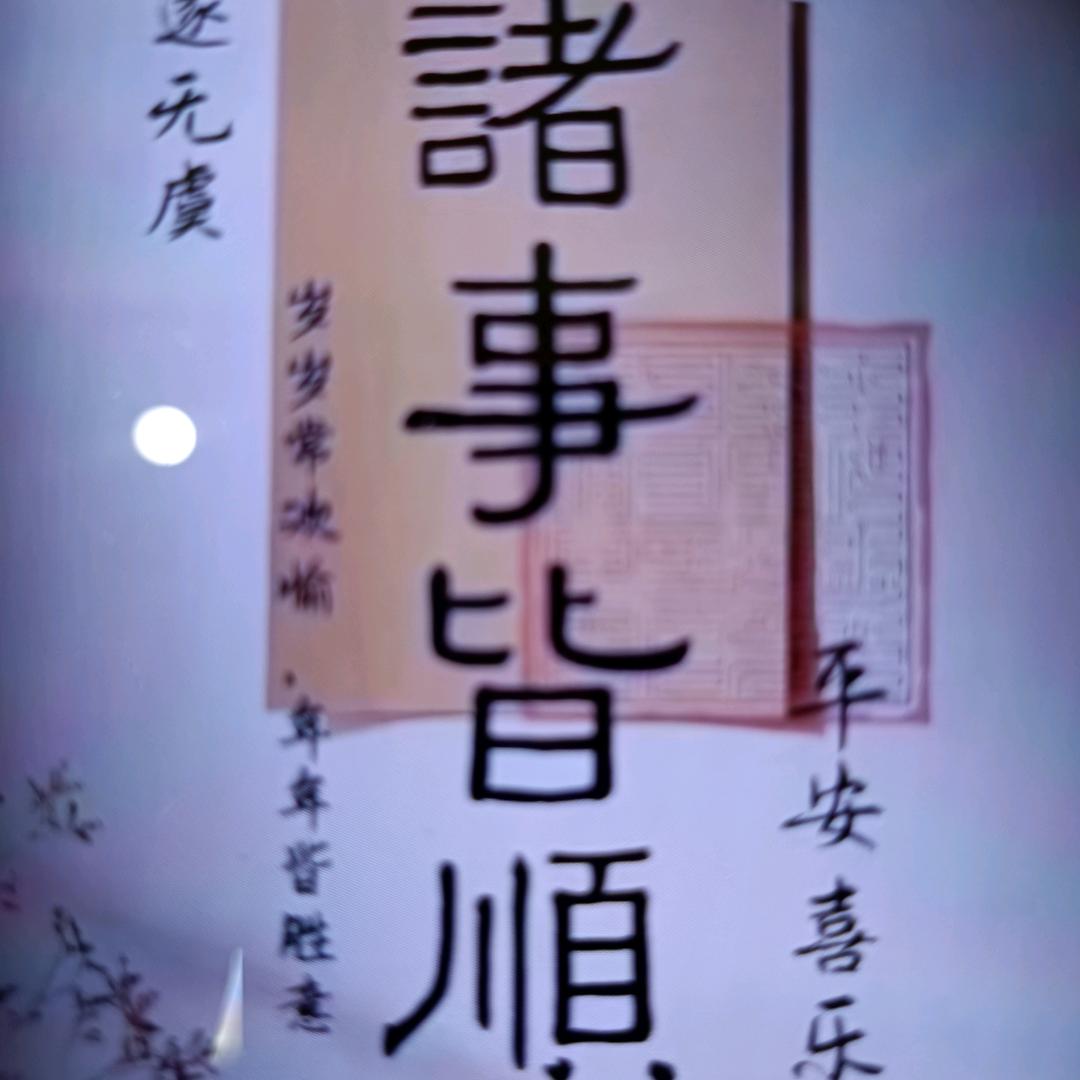 平安喜乐
諸事皆順
岁岁常欢愉·年年皆胜意
遂无虞